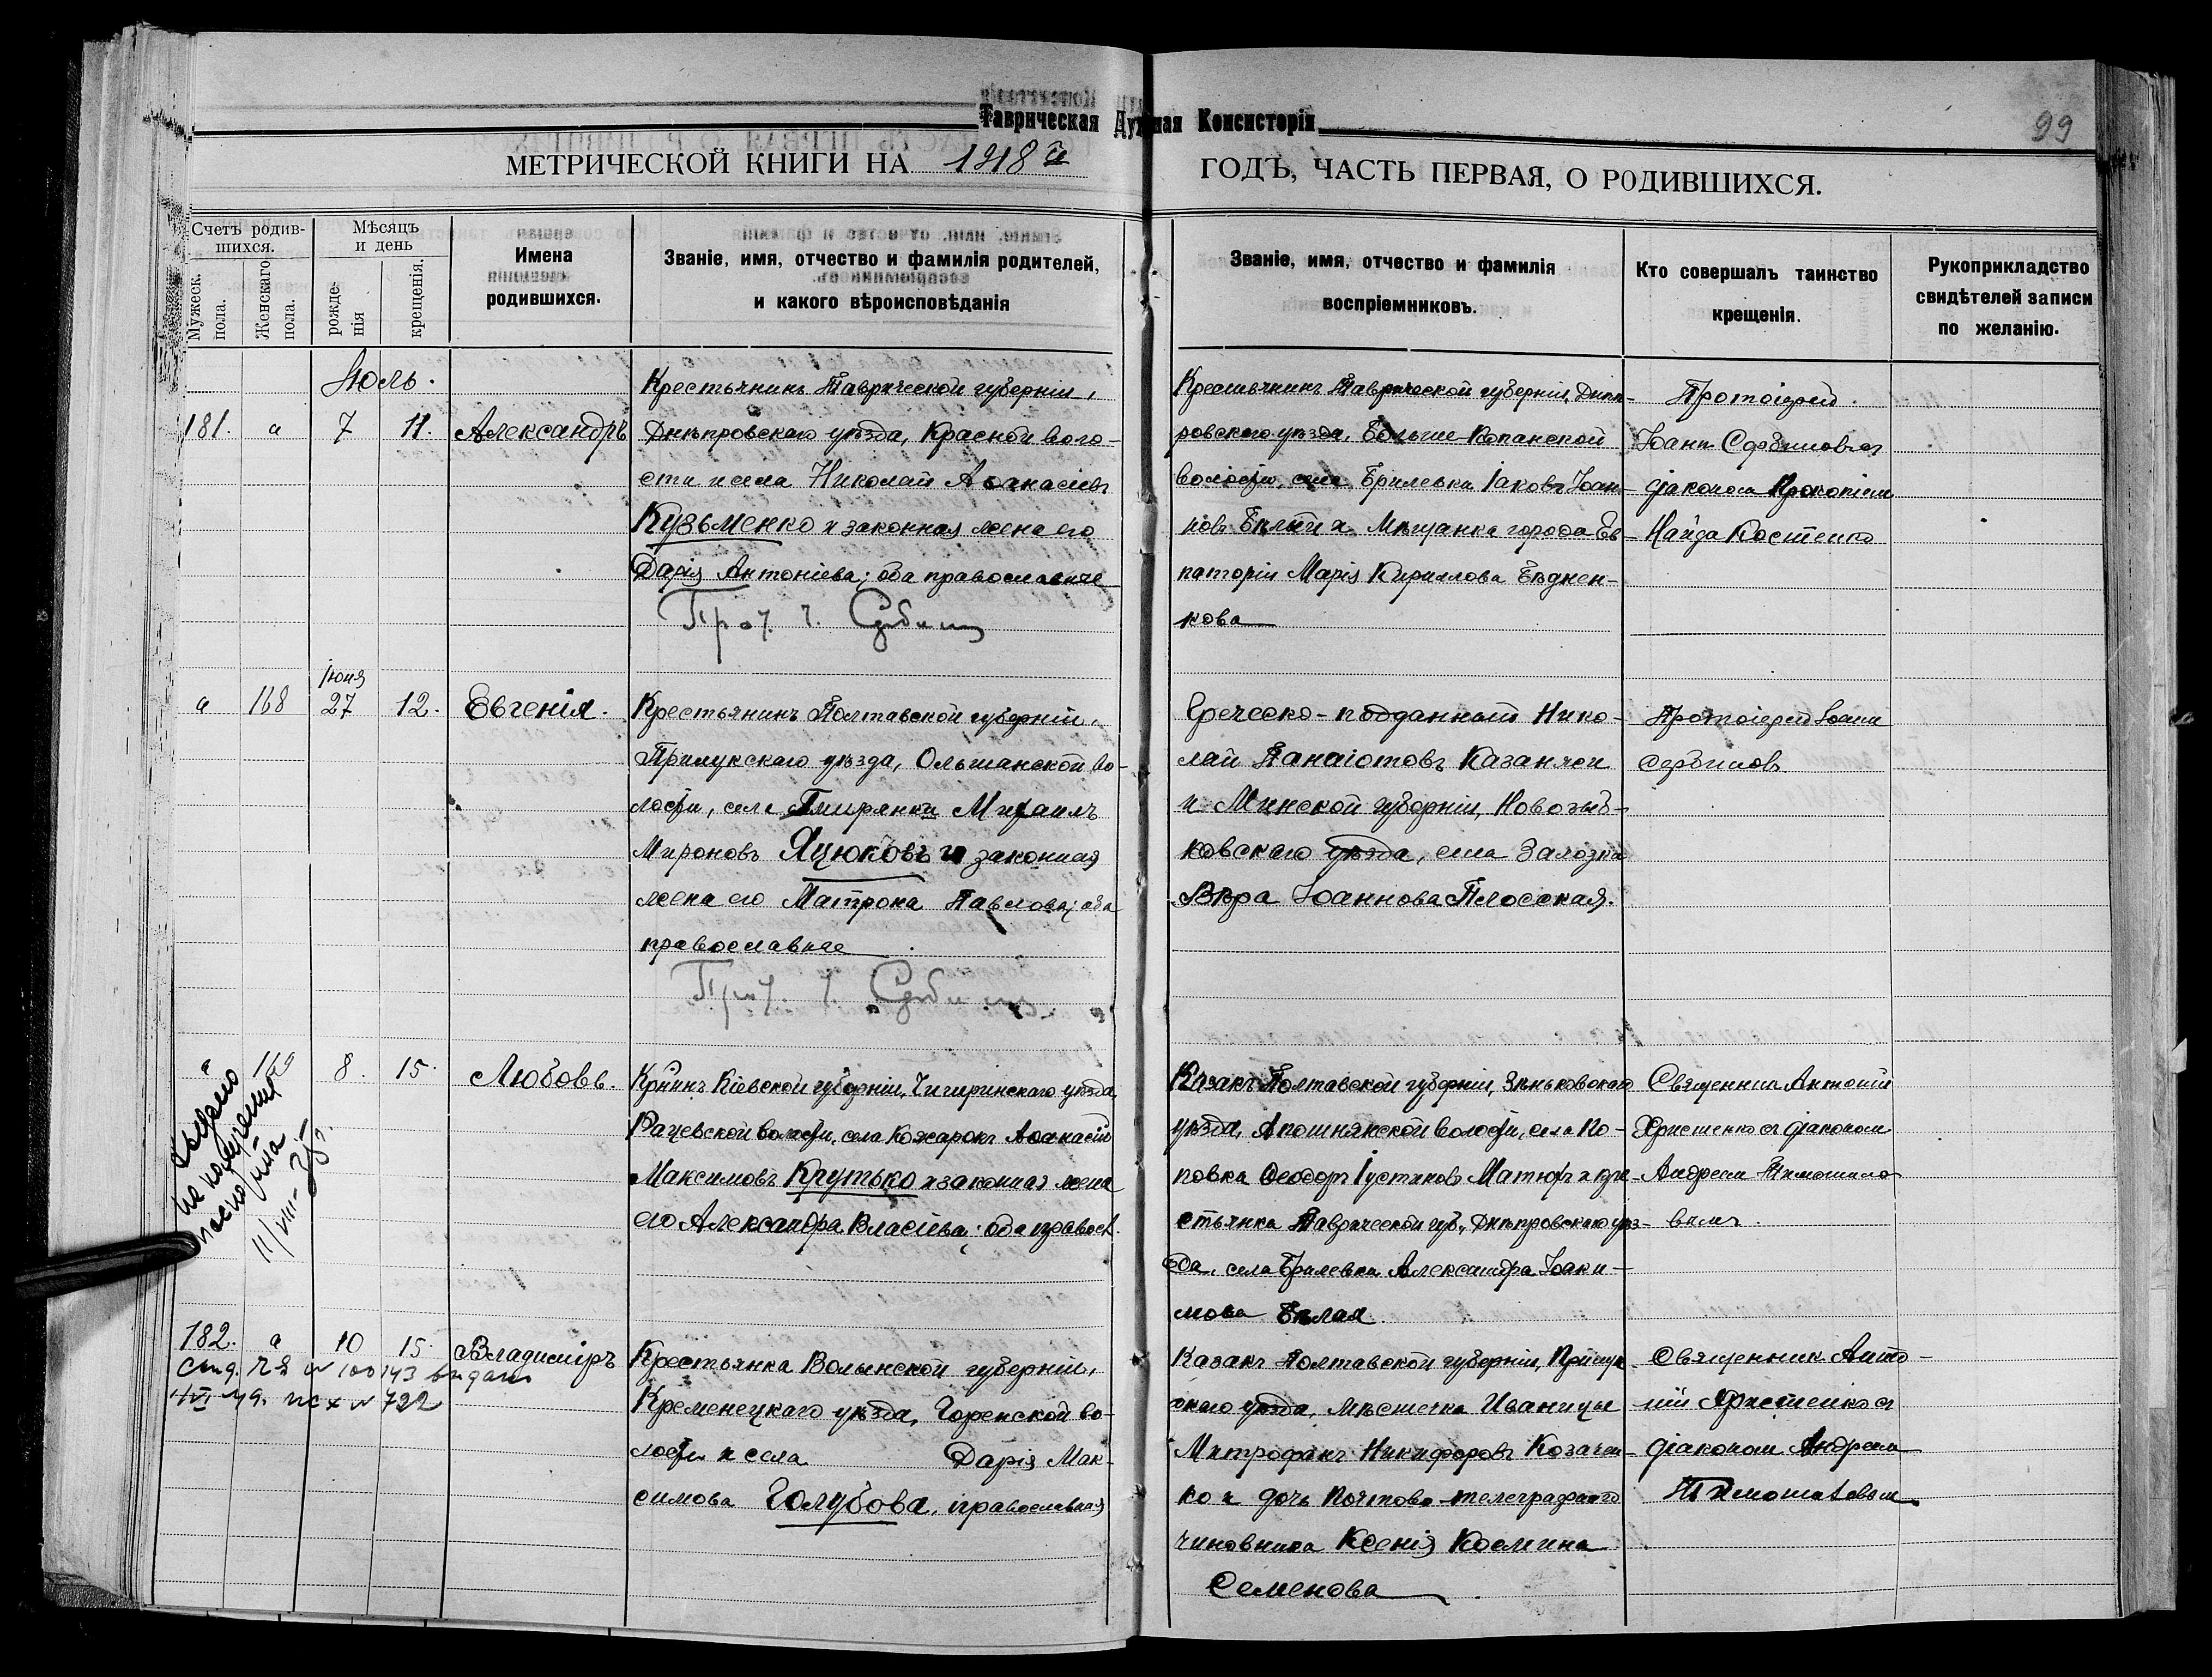 Таврическая Духовная Консисторія
99
МЕТРИЧЕСКОЙ КНИГИ НА 1918 й ГОДЪ, ЧАСТЬ ПЕРВАЯ, О РОДИВШИХСЯ.
Счетъ родив-
шихся.
Мужеск. пола.
Женскаго пола.
Мѣсяцъ
и день
рожде-
нія
крещенія.
Имена
родившихся.
Званіе, имя, отчество и фамилія родителей,
и какого вѣроисповѣданія
Званіе, имя, отчество и фамилія
воспріемниковъ.
Кто совершалъ таинство
крещенія.
Рукоприкладство
свидѣтелей записи
по желанію.
Іюль.
181. а 7 11. Александръ
Крестьянинъ Таврической губерніи,
Днѣпровскаго уѣзда, Красной воло-
сти и села Николай Аѳанасіевъ
Кузьменко и законная жена его
Дарія Антоніева; оба православные
Прот. І. Сербиновъ
Крестьянинъ Таврической губерніи, Днѣп-
ровскаго уѣзда, Больше-Копанской
волости, села Брилевки Іаковъ Іоан-
новъ Бѣлый и Мѣщанка города Ев-
паторіи Марія Кириллова Бѣднен-
кова
Протоіерей
Іоаннъ Сербиновъ съ
діакономъ Прокопіемъ
Найда Костенко
Іюня
а 168 27 12. Евгенія.
Крестьянинъ Полтавской губерніи,
Прилукскаго уѣзда, Ольшанской во-
лости, села Гмирянки Михаилъ
Мироновъ Яцюковъ и законная
жена его Матрона Павлова; оба
православные
Прот. І. Сербиновъ
Греческо-подданный Нико-
лай Панаіотовъ Казанжи
и Минской губерніи, Новозыб-
ковскаго уѣзда, села
Вѣра Іоаннова Плосская.
Протоіерей Іоаннъ
Сербиновъ
а 169 8. 15. Любовь.
Кр‑нинъ Кіевской губерніи, Чигиринскаго уѣзда,
Рацевской волости, села Кожарокъ Аѳанасій
Максимовъ Крутько и законная жена
его Александра Власіева; оба правосл.
Казакъ Полтавской губерніи, Зѣньковскаго
уѣзда, Апошнянской волости, села По-
повка Ѳеодоръ Іустиновъ Матюхъ и кре-
стьянка Таврической губ., Днѣпровскаго уѣз-
да, села Брилевки Александра Іоаки-
мова Бѣлая
Священникъ Антоній
Христенко съ діакономъ
Андреемъ Тимоше-
вымъ.
Выдано
на получения
паспорта
11/VIII-
182. а 10 15. Владиміръ
100143 выдано
исх N 722
Крестьянка Волынской губерніи,
Кременецкаго уѣзда, Горенской во-
лости и села Дарія Мак-
симова Голубова, православная
Казакъ Полтавской губерніи, Прилук-
скаго уѣзда, мѣстечка Иваницы
Митрофанъ Никифоровъ Козачен-
ко и дочь почтово-телеграфнаго
чиновника Ксенія Космина
Семенова
Священникъ Анто-
ній Христенко съ
діакономъ Андреемъ